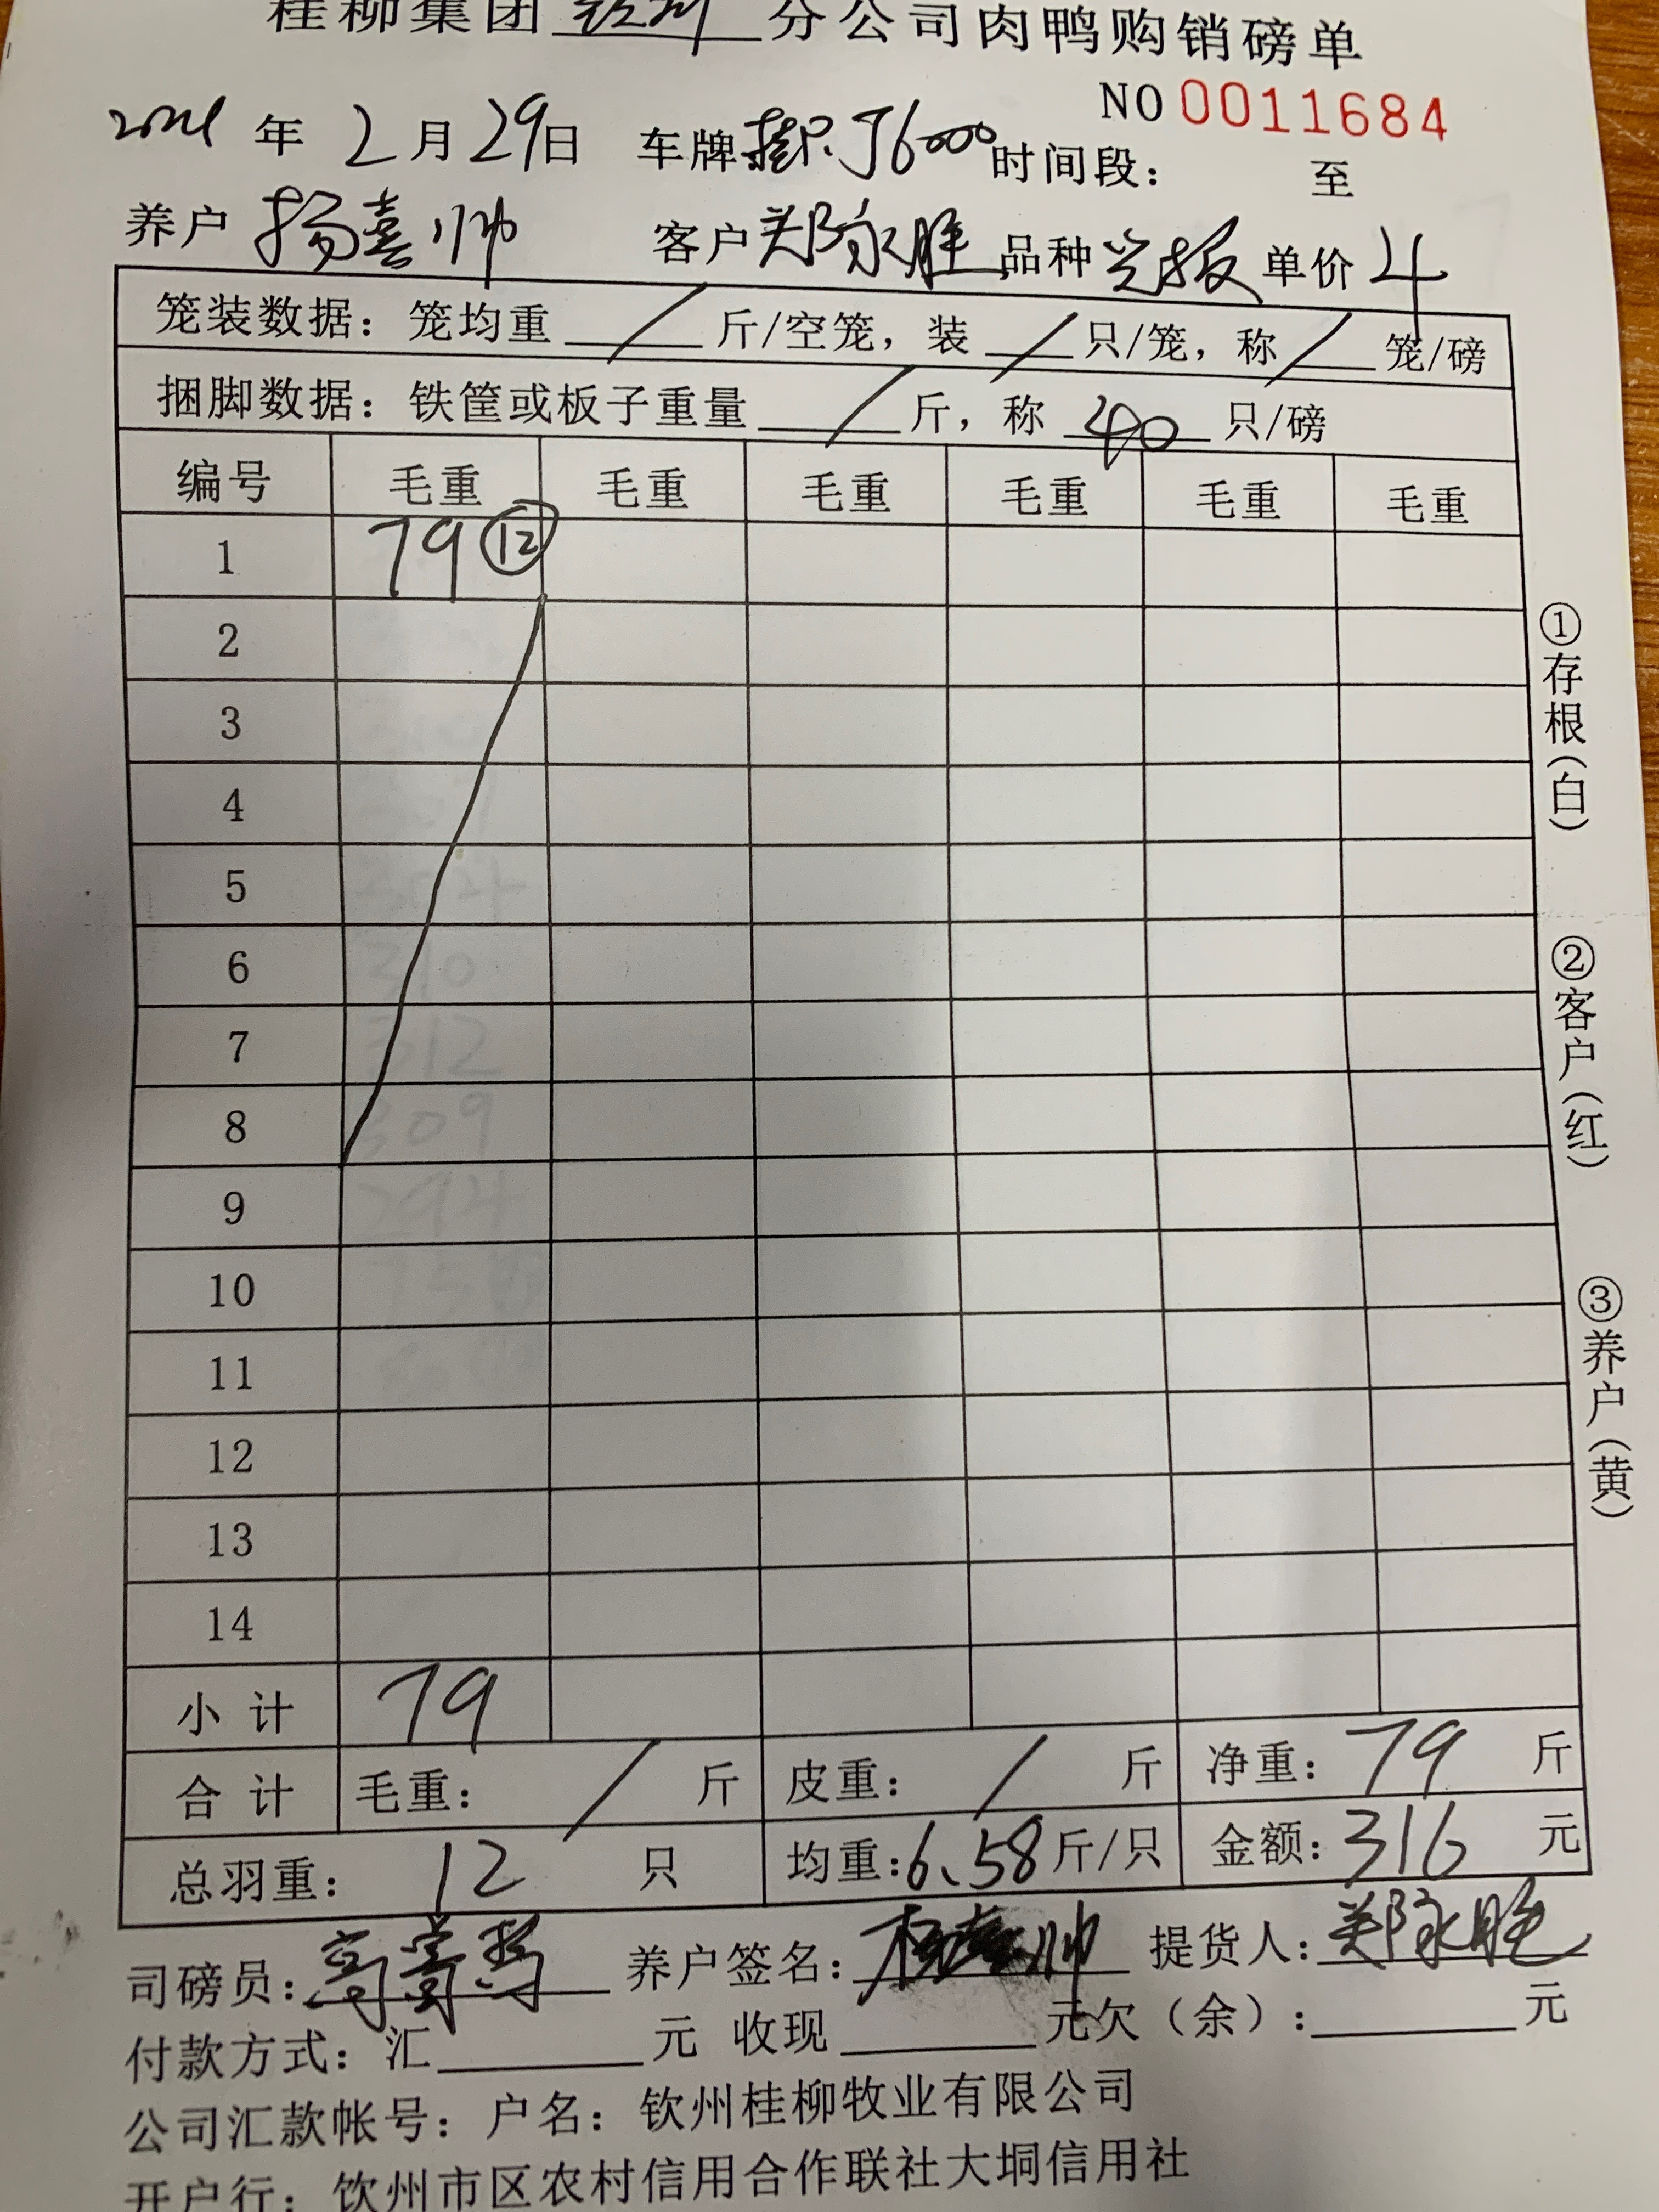 桂柳集团 钦州 分公司肉鸭购销磅单
NO 0011684
2024年2月29日 车牌 J6000 时间段： 至
养户 杨喜帅 客户 郑永胜 品种 光板 单价 4
笼装数据：笼均重 / 斤/空笼，装 / 只/笼，称 / 笼/磅
捆脚数据：铁筐或板子重量 / 斤，称 40 只/磅
编号 毛重 毛重 毛重 毛重 毛重 毛重
1 79 ⑫
2
3
4
5
6
7
8
9
10
11
12
13
14
小计 79
合计 毛重： / 斤 皮重： / 斤 净重：79 斤
总羽重：12 只 均重：6.58 斤/只 金额：316 元
①存根（白）
②客户（红）
③养户（黄）
司磅员： 养户签名：杨喜帅 提货人：郑永胜
付款方式：汇 元 收现 元欠（余）： 元
公司汇款帐号：户名：钦州桂柳牧业有限公司
开户行：钦州市区农村信用合作联社大垌信用社